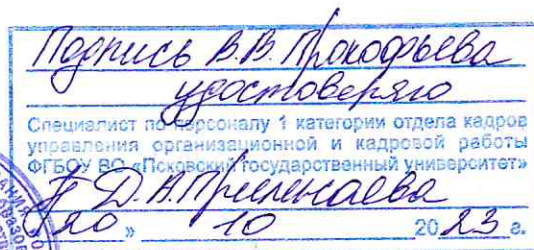 Подпись В.В. Прокофьева
удостоверяю
Специалист по персоналу 1 категории отдела кадров
управления организационной и кадровой работы
ФГБОУ ВО «Псковский государственный университет»
Д.А.
«20» 10 2023 г.